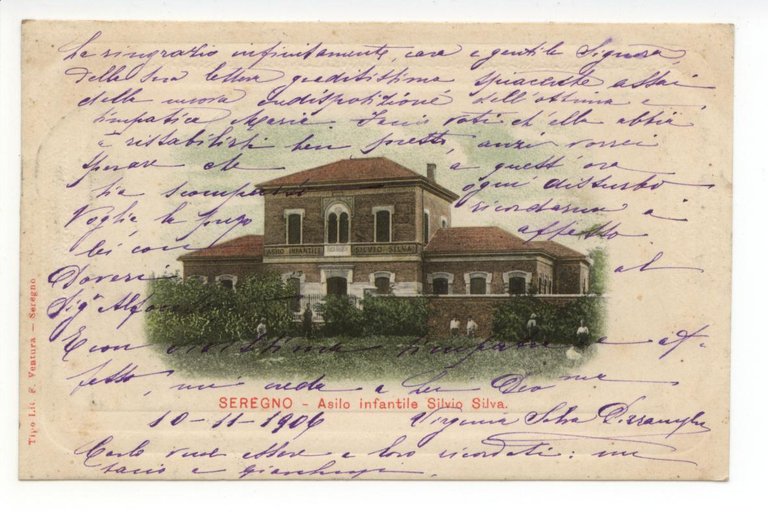 La ringrazio infinitamente, cara e gentile Signora,
della sua lettera graditissima spiacente assai
della nuova indisposizione dell'ottima e
simpatica Maria. Fo voti ch'ella abbia
a ristabilirsi ben presto, anzi vorrei
sperare che a quest'ora
sia scomparso ogni disturbo
Voglia la prego ricordarmi a
lei con affetto
Doveri al
Sigr Alfonso
E con vivissima simpatia e af-
fetto, mi creda a Lei Devma
ASILO INFANTILE SILVIO SILVA
SEREGNO - Asilo infantile Silvio Silva.
10-11-1906 Virginia Silva
Carlo vuol essere a loro ricordato: un
bacio a
Tipo Lit. F. Ventura — Seregno